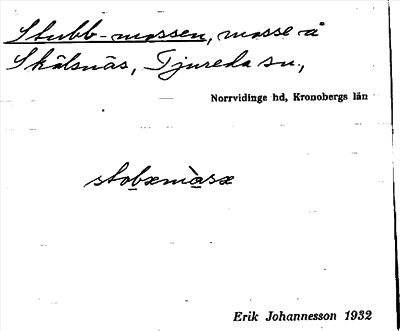 Stubb-mossen, mosse å
Skälsnäs, Tjureda sn.,
Norrvidinge hd, Kronobergs län
stobxmåsx
Erik Johannesson 1932